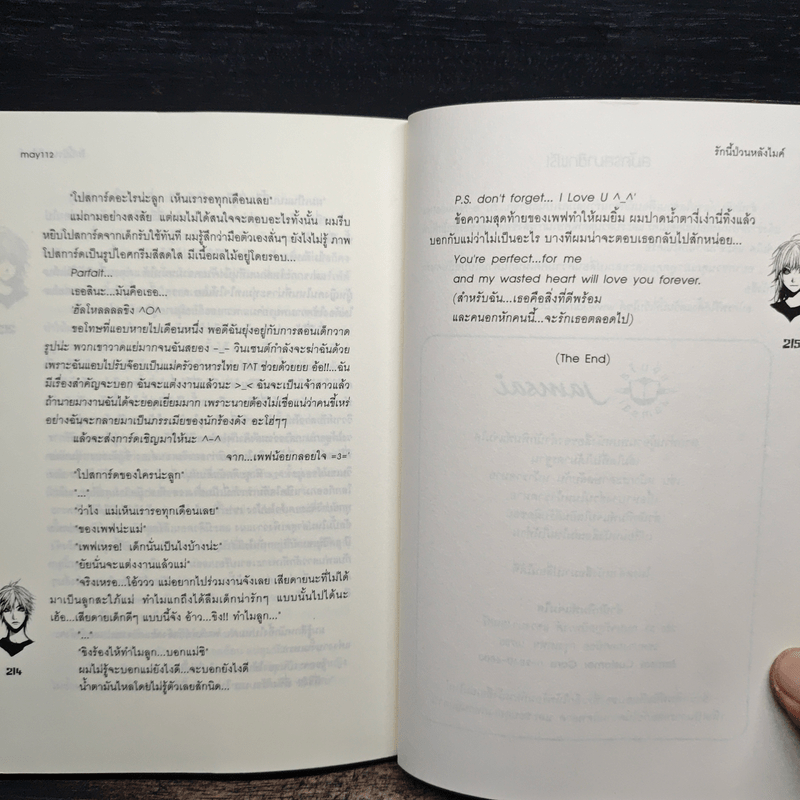 may112
"โปสการ์ดอะไรน่ะลูก เห็นเรารอทุกเดือนเลย"
แม่ถามอย่างสงสัย แต่ผมไม่ได้สนใจจะตอบอะไรทั้งนั้น ผมรีบ
หยิบโปสการ์ดจากเด็กรับใช้ทันที ผมรู้สึกว่ามือตัวเองสั่นๆ ยังไงไม่รู้ ภาพ
โปสการ์ดเป็นรูปไอศกรีมสีสดใส มีเนื้อผลไม้อยู่โดยรอบ...
Parfait...
เธอสินะ...มันคือเธอ...
'ฮัลโหลลลลชิง ^O^
ขอโทษที่แอบหายไปเดือนหนึ่ง พอดีฉันยุ่งอยู่กับการสอนเด็กวาด
รูปน่ะ พวกเขาวาดแย่มากจนฉันสยอง -_- วินเซนต์กำลังจะฆ่าฉันด้วย
เพราะฉันแอบไปรับจ๊อบเป็นแม่ครัวอาหารไทย T^T ช่วยด้วยยย อ้อ!!...ฉัน
มีเรื่องสำคัญจะบอก ฉันจะแต่งงานแล้วนะ >_< ฉันจะเป็นเจ้าสาวแล้ว
ถ้านายมางานฉันได้จะยอดเยี่ยมมาก เพราะนายต้องไม่เชื่อแน่ว่าคนขี้เหร่
อย่างฉันจะกลายมาเป็นภรรเมียของนักร้องดัง อะโฮ่ๆๆ
แล้วจะส่งการ์ดเชิญมาให้นะ ^-^
จาก...เพฟน้อยกลอยใจ =3='
"โปสการ์ดของใครน่ะลูก"
"..."
"ว่าไง แม่เห็นเรารอทุกเดือนเลย"
"ของเพฟน่ะแม่"
"เพฟเหรอ! เด็กนั่นเป็นไงบ้างน่ะ"
"ยัยนั่นจะแต่งงานแล้วแม่"
"จริงเหรอ...โอ้ววว แม่อยากไปร่วมงานจังเลย เสียดายนะที่ไม่ได้
มาเป็นลูกสะใภ้แม่ ทำไมแกถึงได้ลืมเด็กน่ารักๆ แบบนั้นไปได้นะ
เฮ้อ...เสียดายเด็กดีๆ แบบนี้จัง อ้าว...ชิง!! ทำไมลูก..."
"..."
"ชิงร้องไห้ทำไมลูก...บอกแม่ซิ"
ผมไม่รู้จะบอกแม่ยังไงดี...จะบอกยังไงดี
น้ำตามันไหลโดยไม่รู้ตัวเลยสักนิด...
214
รักนี้ป่วนหลังไมค์
P.S. don't forget... I Love U ^_^'
ข้อความสุดท้ายของเพฟทำให้ผมยิ้ม ผมปาดน้ำตางี่เง่านี่ทิ้งแล้ว
บอกกับแม่ว่าไม่เป็นอะไร บางทีผมน่าจะตอบเธอกลับไปสักหน่อย...
You're perfect...for me
and my wasted heart will love you forever.
(สำหรับฉัน...เธอคือสิ่งที่ดีพร้อม
และคนอกหักคนนี้...จะรักเธอตลอดไป)
(The End)
215